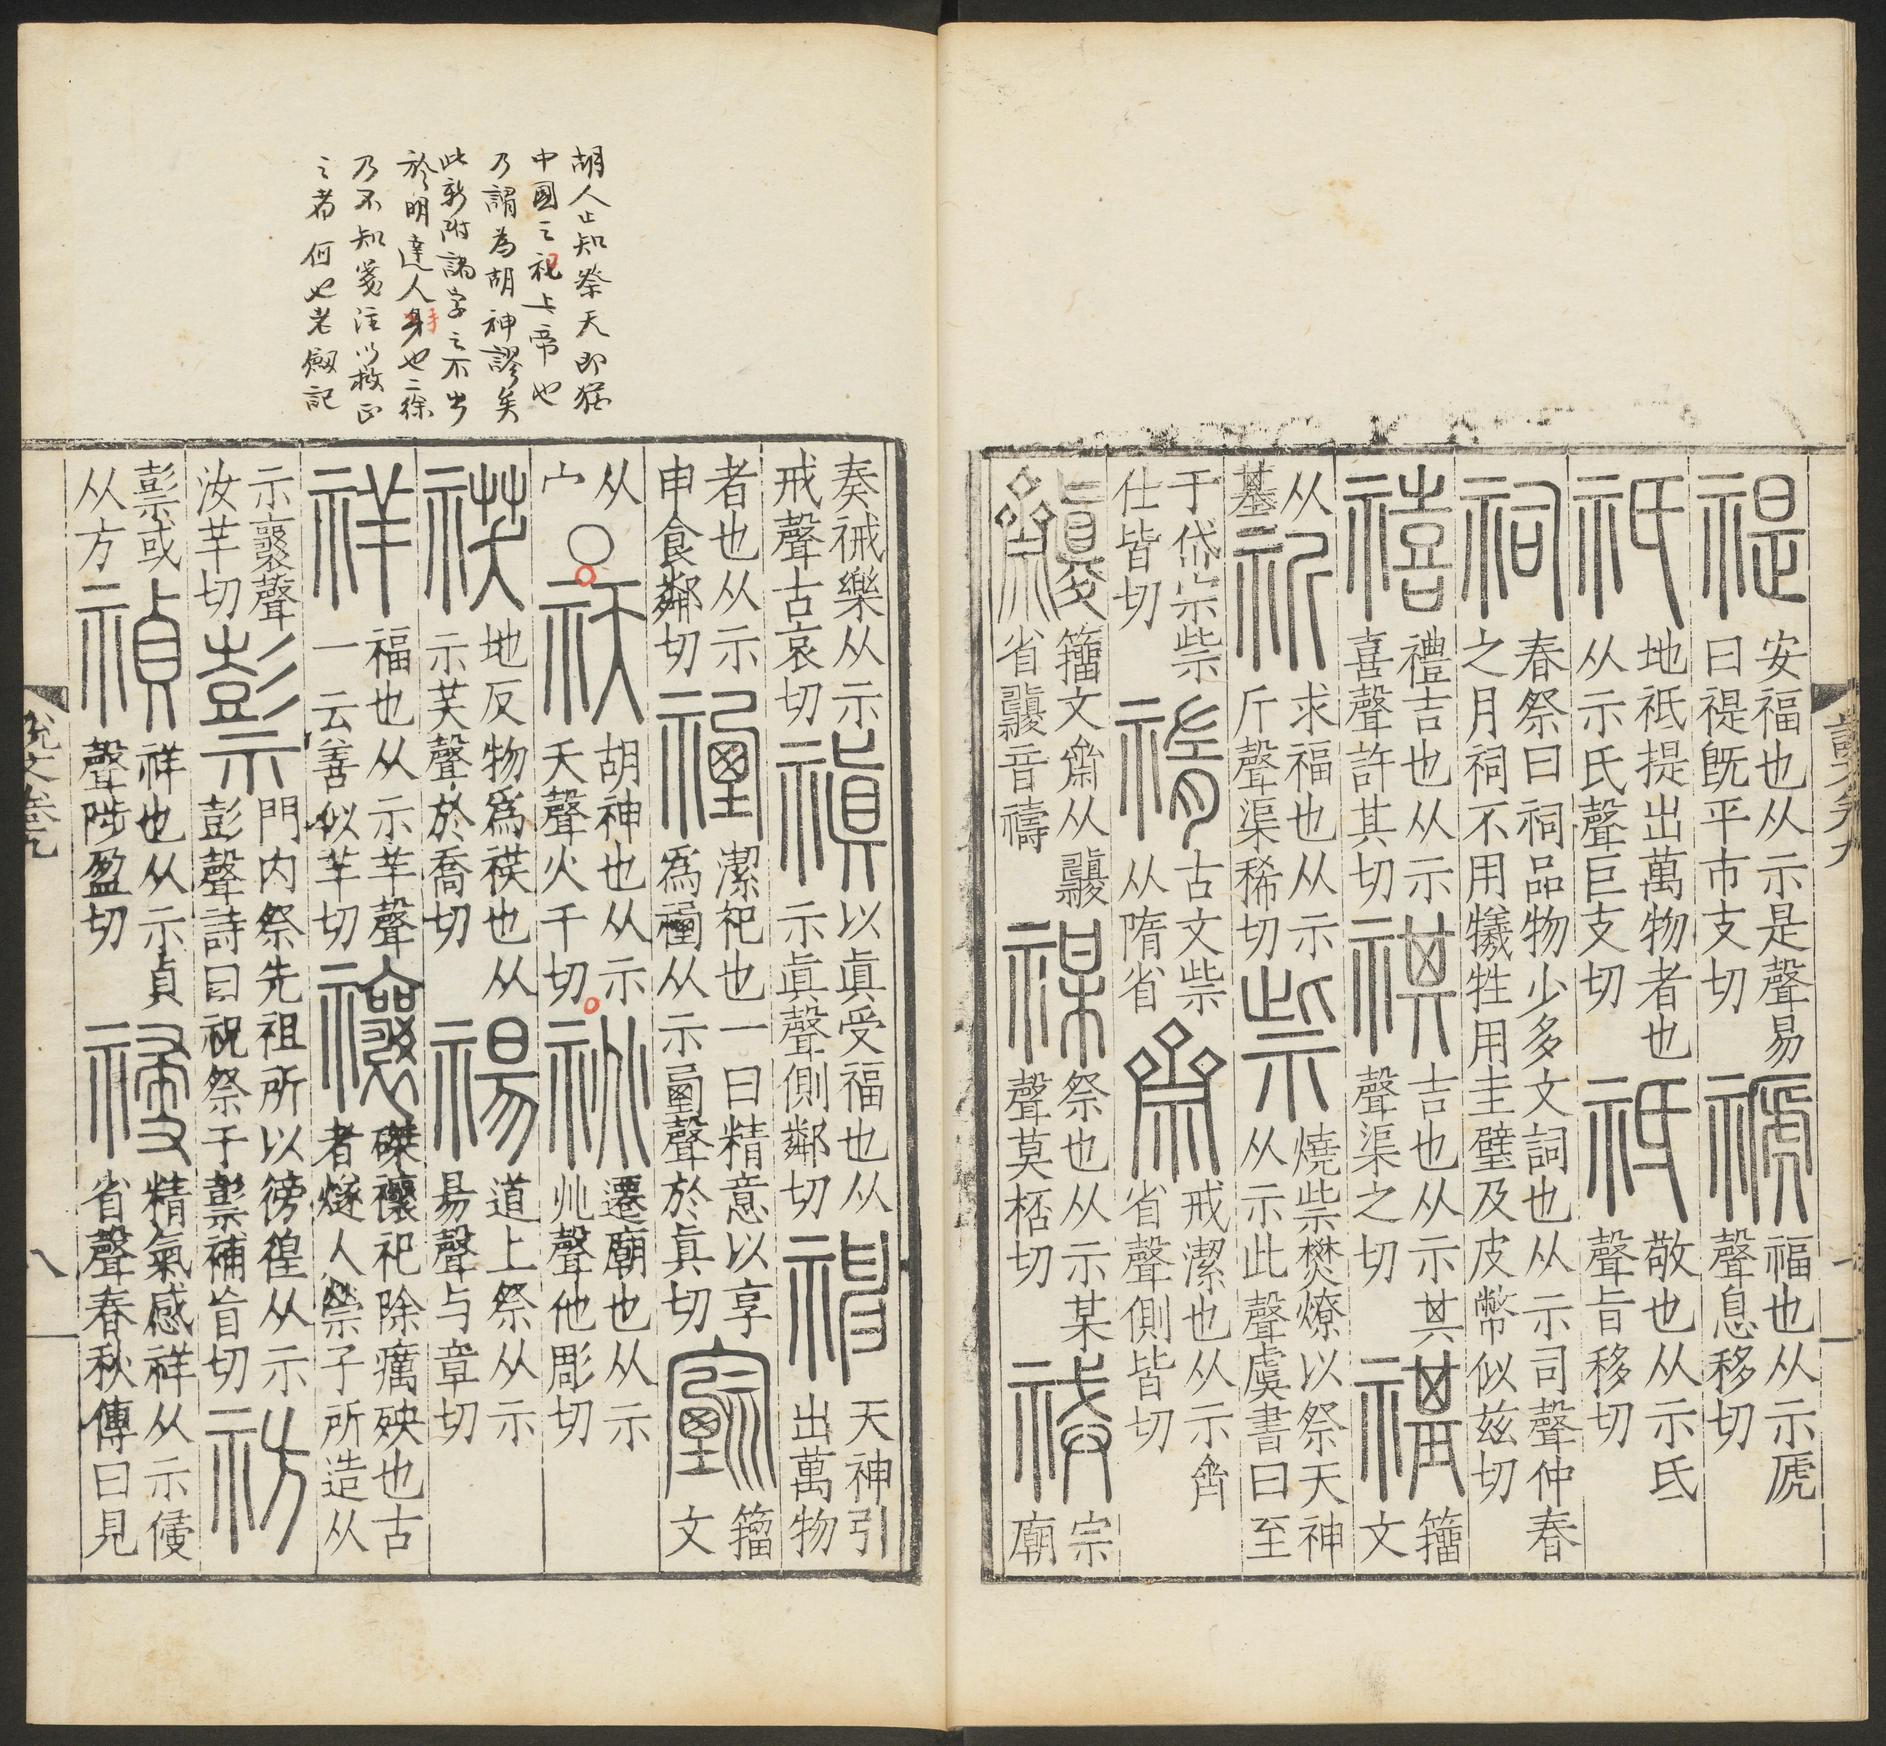 禔安福也从示是聲易曰禔既平市支切禠福也从示虒聲息移切
祇地祇提出萬物者也从示氏聲巨支切祗敬也从示氐聲旨移切
祠春祭曰祠品物少多文詞也从示司聲仲春之月祠不用犧牲用圭璧及皮幣似兹切
禧禮吉也从示喜聲許其切祺吉也从示其聲渠之切禥籀文
从基祈求福也从示斤聲渠稀切祡燒祡焚燎以祭天神从示此聲虞書曰至
于岱宗祡仕皆切古文祡从隋省齋戒潔也从示齊省聲側皆切
籀文齋从省音禱禖祭也从示某聲莫桮切祴宗廟
胡人止知祭天即猶
中國之祀上帝也
乃謂為胡神謬矣
此新附諸字之不出
於明達人手也二徐
乃不知箋注以救正
之者何也老劔記
奏祴樂从示戒聲古哀切禛以眞受福也从示眞聲側鄰切神天神引出萬物
者也从示申食鄰切禋潔祀也一曰精意以享爲禋从示垔聲於眞切籀文
从宀○祆胡神也从示天聲火千切祧遷廟也从示兆聲他彫切
䄏地反物爲䄏也从示芺聲於喬切禓道上祭从示昜聲与章切
祥福也从示羊聲一云善似羊切禳磔禳祀除癘殃也古者燧人禜子所造从
示襄聲汝羊切𥛱門内祭先祖所以徬徨从示彭聲詩曰祝祭于𥛱補盲切祊
𥛱或从方禎祥也从示貞聲陟盈切祲精氣感祥从示侵省聲春秋傳曰見
說文卷元
八